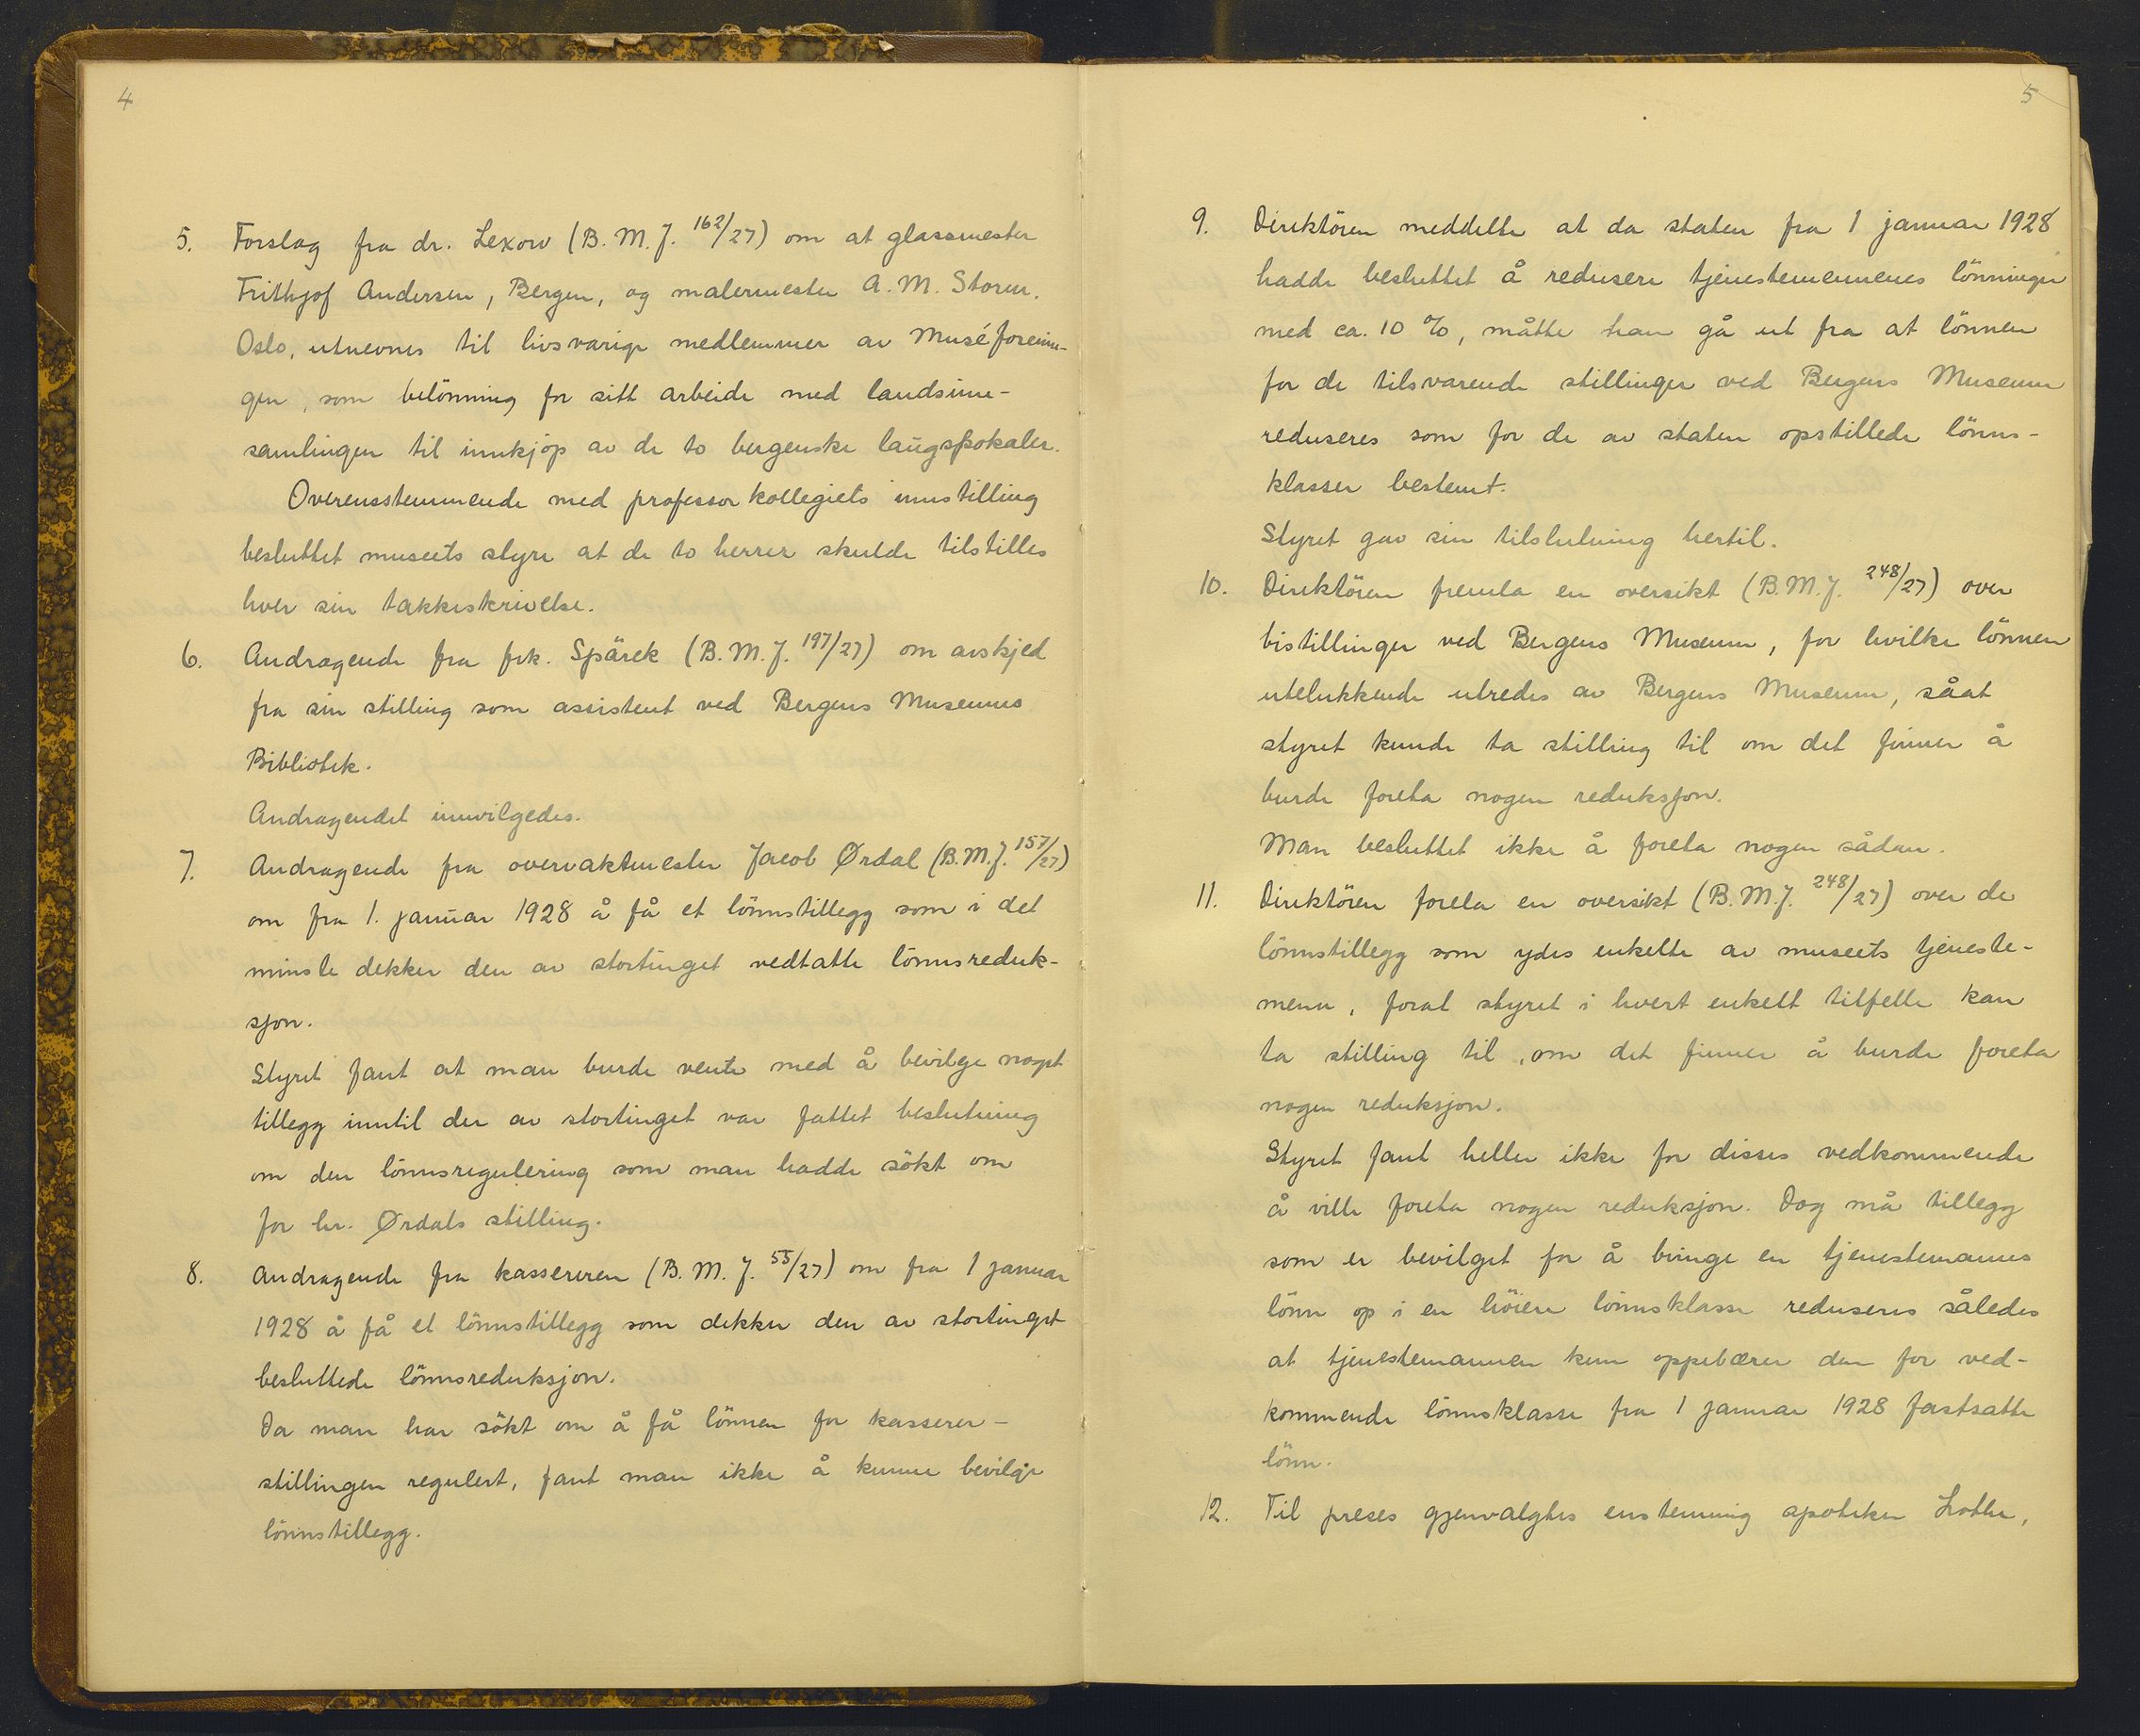 4
5. Forslag fra dr. Lexow (B. M. J. 162/27) om at glassmester
Frithjof Andersen, Bergen, og malermester A. M. Storm.
Oslo, utnevnes til livsvarige medlemmer av Muséforenin-
gen, som belönning for sitt arbeide med landsinn-
samlingen til innkjöp av de to bergenske laugspokaler.
Overensstemmende med professorkollegiets innstilling
besluttet museets styre at de to herrer skulde tilstilles
hver sin takkeskrivelse.
6. Andragende fra frk. Spärck (B. M. J. 197/27) om avskjed
fra sin stilling som assistent ved Bergens Museums
Bibliotek.
Andragendet innvilgedes.
7. Andragende fra overvaktmester Jacob Ørdal (B. M. J. 157/27)
om fra 1. januar 1928 å få et lönnstillegg som i det
minste dekker den av stortinget vedtatte lönnsreduk-
sjon.
Styret fant at man burde vente med å bevilge noget
tillegg inntil der av stortinget var fattet beslutning
om den lönnsregulering som man hadde sökt om
for hr. Ørdals stilling.
8. Andragende fra kassereren (B. M. J. 55/27) om fra 1 januar
1928 å få et lönnstillegg som dekker den av stortinget
besluttede lönnsreduksjon.
Da man har sökt om å få lönnen for kasserer-
stillingen regulert, fant man ikke å kunne bevilge
lönnstillegg.
5
9. Direktören meddelte at da staten fra 1 januar 1928
hadde besluttet å redusere tjenestemennenes lönninger
med ca. 10 %, måtte han gå ut fra at lönnen
for de tilsvarende stillinger ved Bergens Museum
reduseres som for de av staten opstillede lönns-
klasser bestemt.
Styret gav sin tilslutning hertil.
10. Direktören fremla en oversikt (B. M. J. 248/27) over
bistillinger ved Bergens Museum, for hvilke lönnen
utelukkende utredes av Bergens Museum, såat
styret kunde ta stilling til om det finner å
burde foreta nogen reduksjon.
Man besluttet ikke å foreta nogen sådan.
11. Direktören forela en oversikt (B. M. J. 248/27) over de
lönnstillegg som ydes enkelte av museets tjeneste-
menn, forat styret i hvert enkelt tilfelle kan
ta stilling til, om det finner å burde foreta
nogen reduksjon.
Styret fant heller ikke for disses vedkommende
å ville foreta nogen reduksjon. Dog må tillegg
som er bevilget for å bringe en tjenestemanns
lönn op i en höiere lönnsklasse reduseres således
at tjenestemannen kun oppebærer den for ved-
kommende lönnsklasse fra 1 januar 1928 fastsatte
lönn.
12. Til preses gjenvalgtes enstemmig apoteker Lothe,